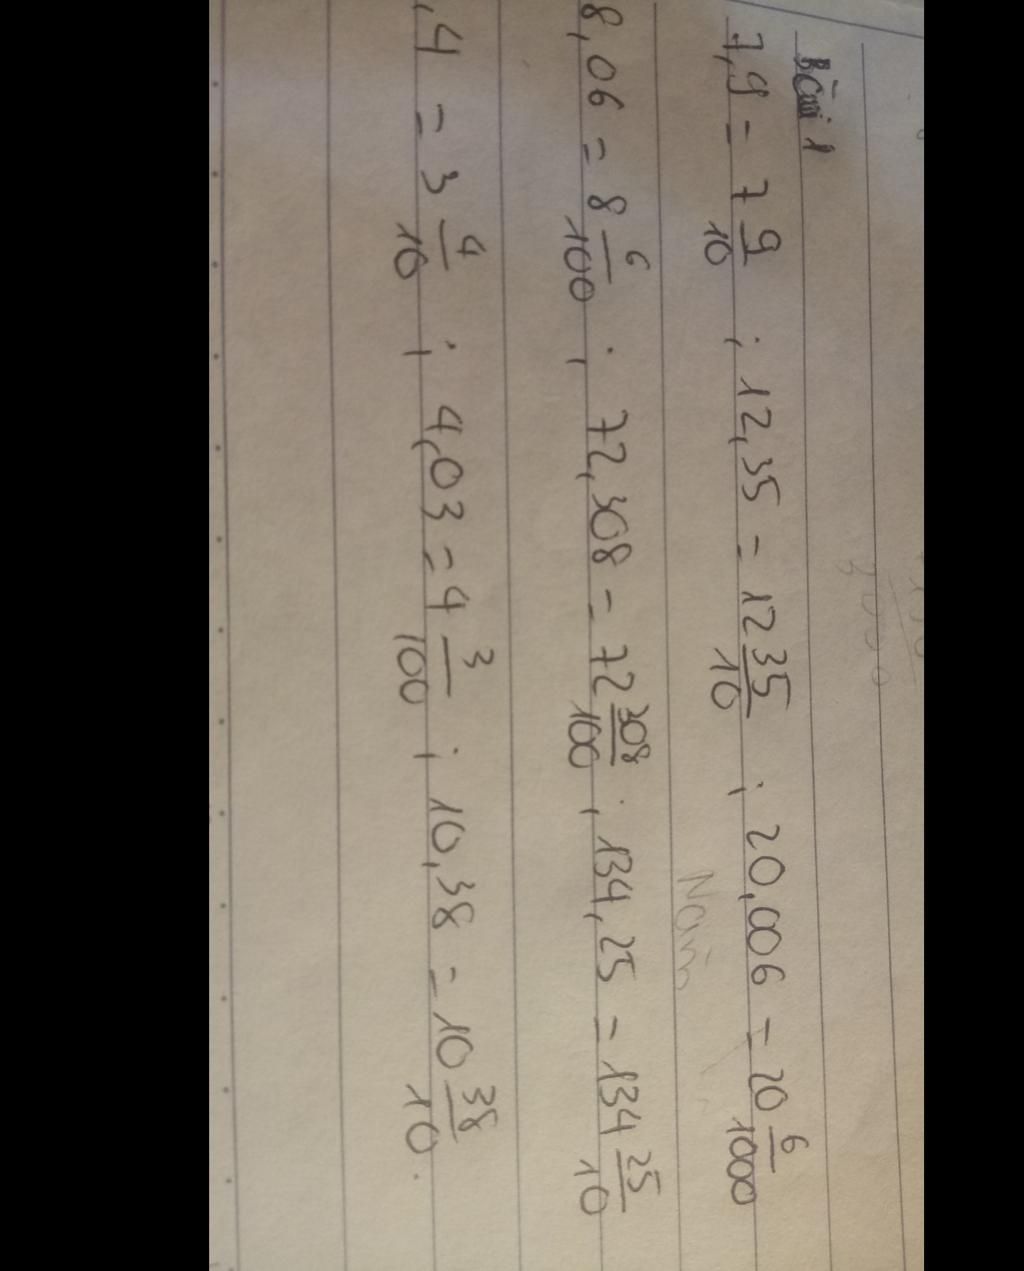 Bài 1
7,9 = 7 9/10 ; 12,35 = 12 35/10 ; 20,006 = 20 6/1000
8,06 = 8 6/100 ; 72,308 = 72 308/100 ; 134,25 = 134 25/10
,4 = 3 4/10 ; 4,03 = 4 3/100 ; 10,38 = 10 38/10.